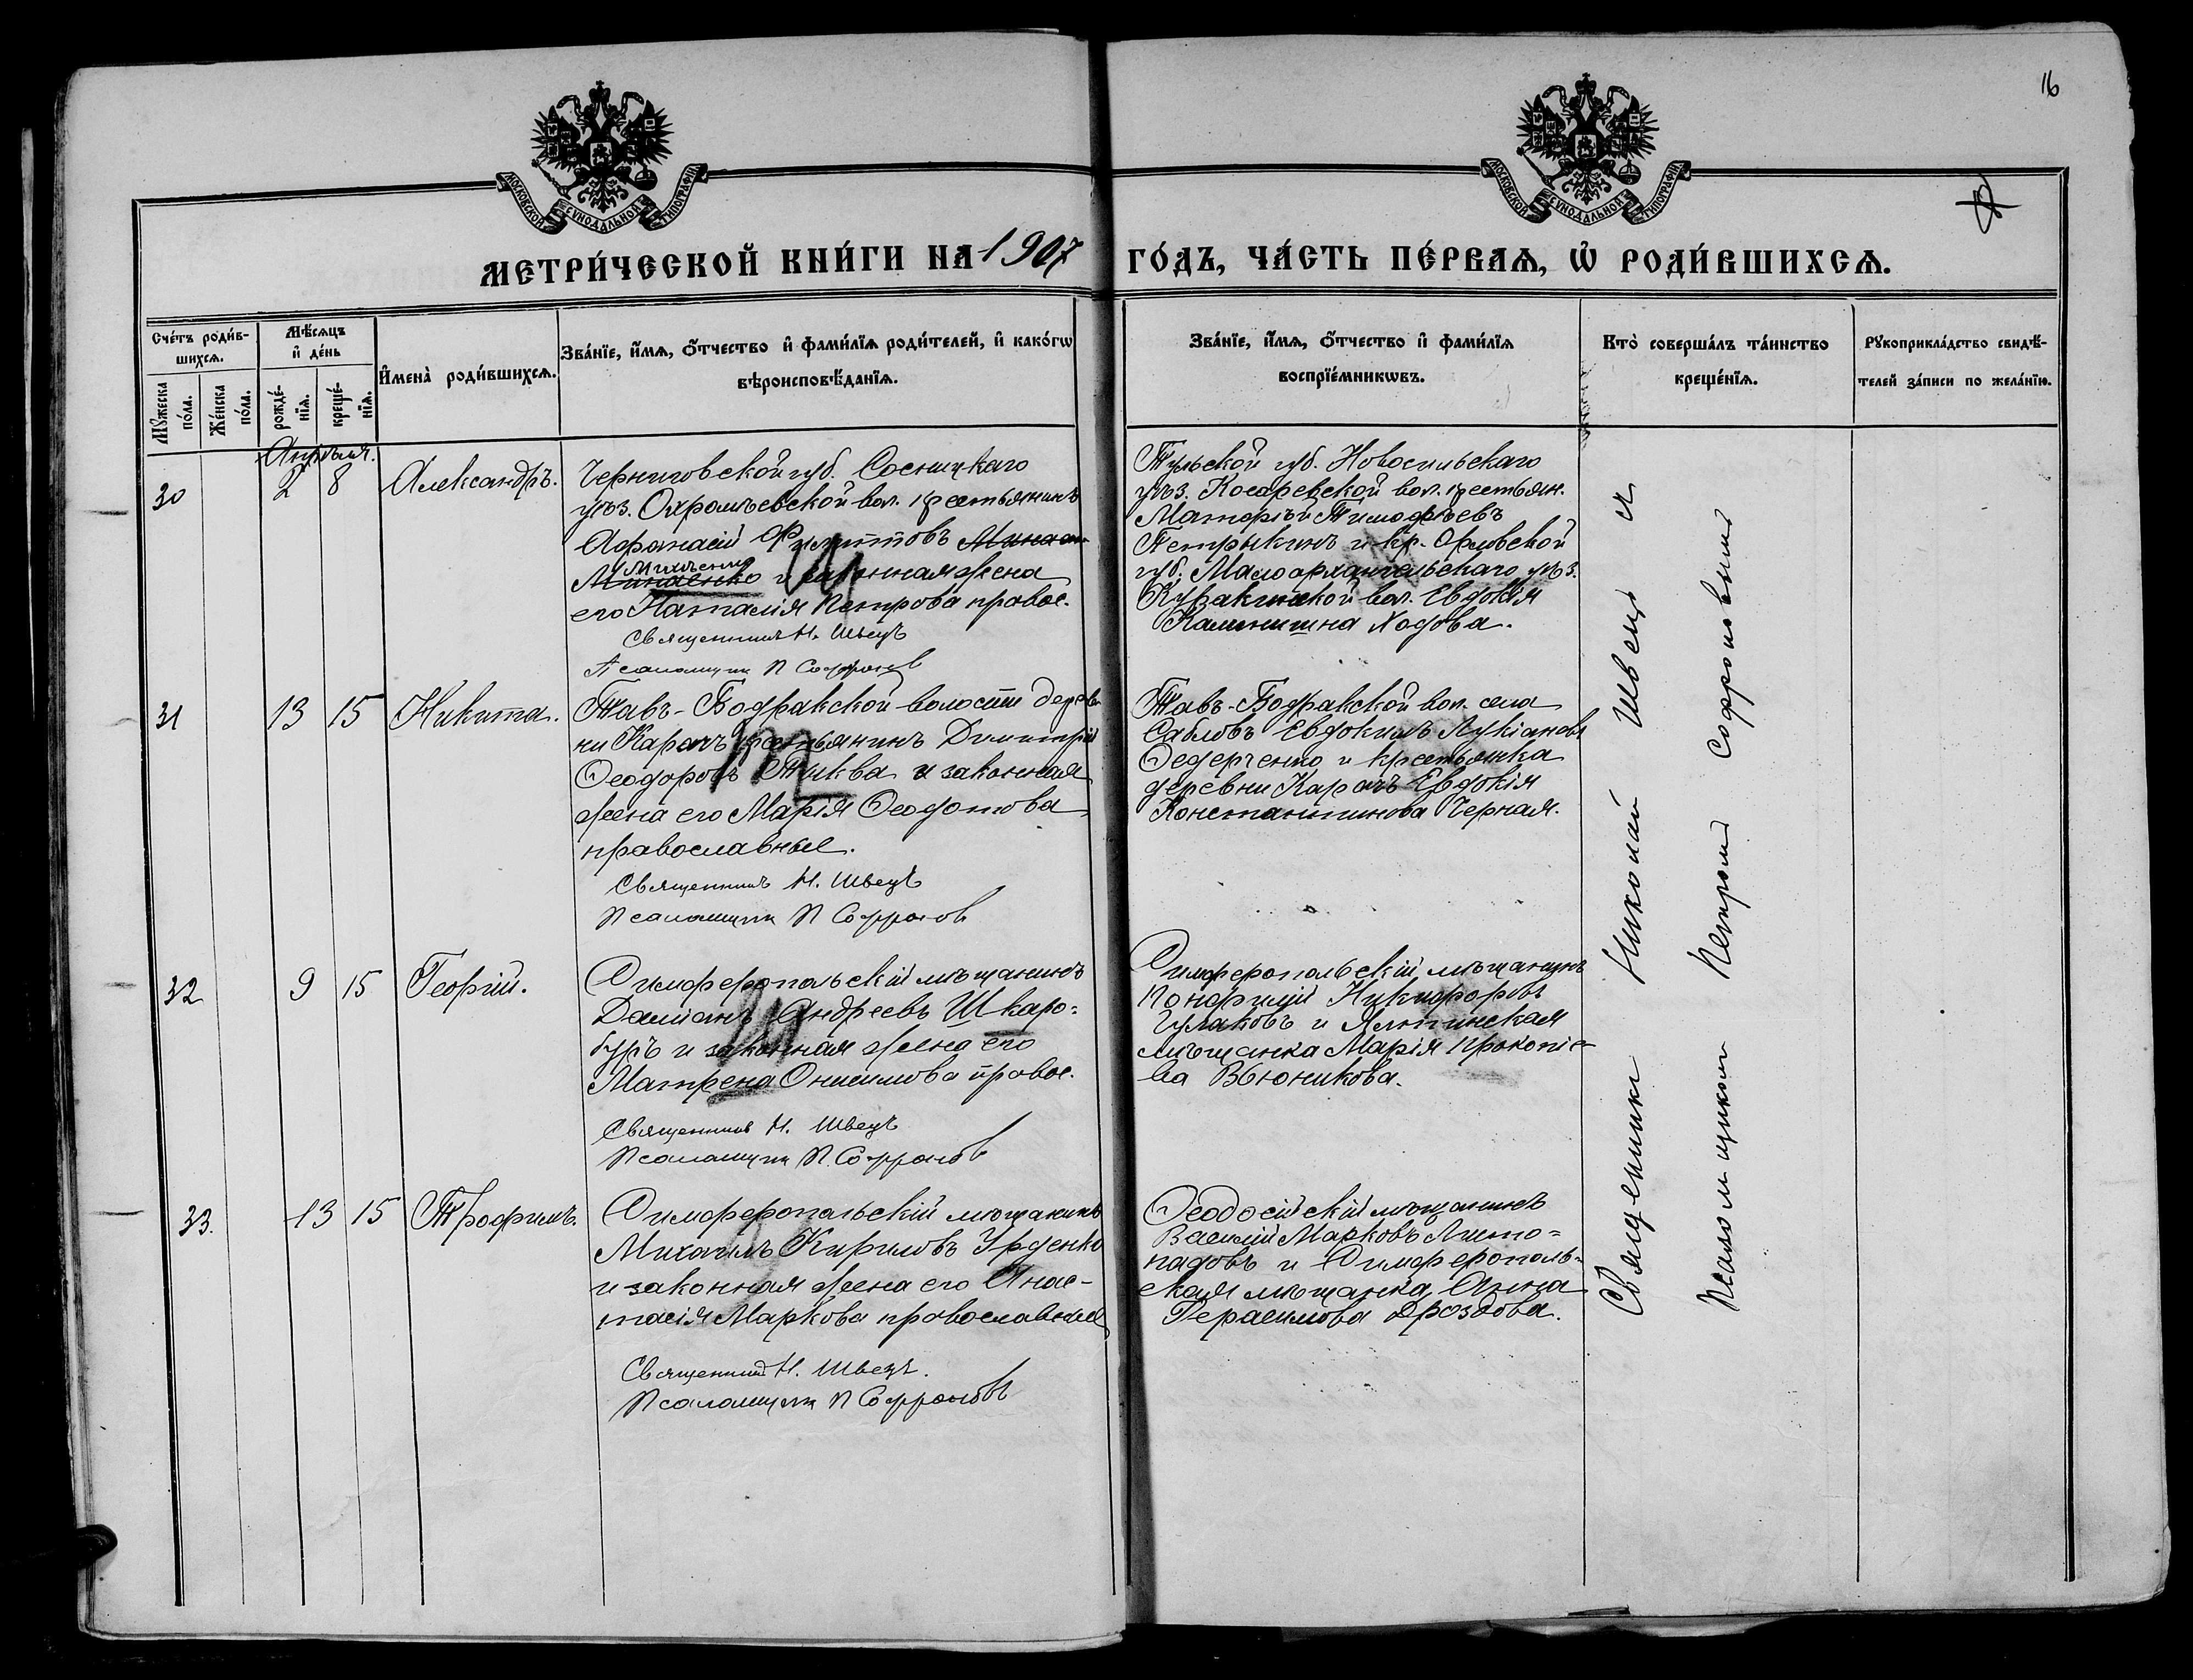 16
МОСКОВСКОЙ СУНОДАЛЬНОЙ ТИПОГРАФІИ
МОСКОВСКОЙ СУНОДАЛЬНОЙ ТИПОГРАФІИ
МЕТРИ́ЧЕСКОЙ КНИ́ГИ НА 1907 ГО́ДЪ, ЧА́СТЬ ПЕ́РВАѦ, Ѡ҆ РОДИ́ВШИХСѦ.
Сче́тъ роди́в-
шихсѧ.
Мꙋ́жеска по́ла.
Же́нска по́ла.
Мѣ́сѧцъ
и҆ де́нь
рожде́-
нїѧ.
креще́-
нїѧ.
И҆мена̀ роди́вшихсѧ.
Зва́нїе, и҆́мѧ, ѻ҆́тчество и҆ фами́лїѧ роди́телей, и҆ како́гѡ
вѣроисповѣ́данїѧ.
Зва́нїе, и҆́мѧ, ѻ҆́тчество и҆ фами́лїѧ
воспрїе́мникѡвъ.
Кто̀ соверша́лъ та́инство
креще́нїѧ.
Рꙋкоприкла́дство свидѣ́-
телей за́писи по жела́нїю.
Апрѣля.
30
2 8
Александръ.
Черниговской губ. Сосницкаго
уѣз. Охромѣевской вол. крестьянинъ
Афанасій Филипповъ
и законная жена
его Наталія Петрова правос.
Священникъ Н. Швецъ
Псаломщикъ П Софронов
Тульской губ. Новосильскаго
уѣз. Косаревской вол. крестьян.
Матфѣй Тимофѣевъ
Петрыкинъ и кр. Орловской
губ. Малоархангельскаго уѣз.
Куракинской вол. Евдокія
Калинишна Ходова.
31
13 15
Никита.
Тавъ-Бодракской волости дерев-
ни Карачъ крестьянинъ Димитрій
Ѳеодоровъ Тыква и законная
жена его Марія Ѳеодотова
православные.
Священникъ Н. Швецъ
Псаломщикъ П Софронов
Тавъ-Бодракской вол. села
Сабловъ Евдокимъ Лукіановъ
Ѳедерченко и крестьянка
деревни Карачъ Евдокія
Константинова Черная.
32
9 15
Георгій.
Симферопольскій мѣщанинъ
Даміанъ Андреевъ Шкаро-
буръ и законная жена его
Матрена Онисимова правос.
Священникъ Н. Швецъ
Псаломщикъ П. Софронов
Симферопольскій мѣщанинъ
Никифоровъ
Гулаковъ и Ялтинская
мѣщанка Марія Прокопіе-
ва Вьюникова.
33.
13 15
Трофимъ.
Симферопольскій мѣщанинъ
Михаилъ Кириловъ Урденко
и законная жена его Анас-
тасія Маркова православные
Священникъ Н. Швецъ.
Псаломщикъ П Софроновъ
Ѳеодосійскій мѣщанинъ
Василій Марковъ Листо-
падовъ и Симферополь-
ская мѣщанка Анна
Герасимова Дроздова.
Священникъ Николай Швецъ съ
псаломщикомъ Петромъ Софроновымъ